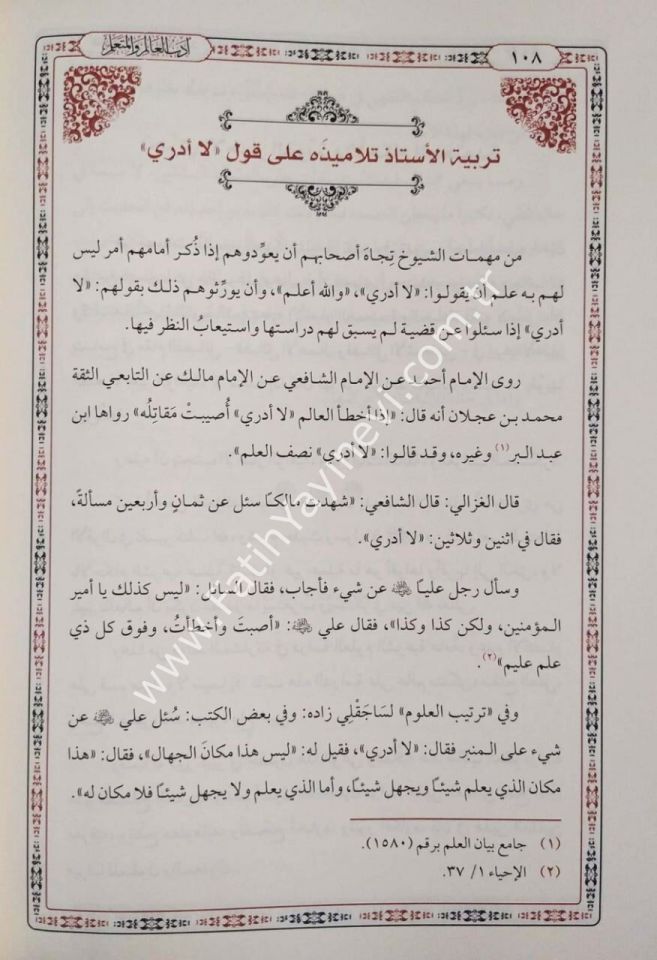 ١٠٨
أدب العالم والمتعلم
تربية الأستاذ تلاميذَه على قول «لا أدري»
من مهمات الشيوخ تِجاهَ أصحابهم أن يعوِّدوهم إذا ذُكر أمامهم أمر ليس
لهم به علم أن يقولوا: «لا أدري»، «والله أعلم»، وأن يورِّثوهم ذلك بقولهم: «لا
أدري» إذا سئلوا عن قضية لم يسبق لهم دراستها واستيعابُ النظر فيها.
روى الإمام أحمد عن الإمام الشافعي عن الإمام مالك عن التابعي الثقة
محمد بن عجلان أنه قال: «إذا أخطأ العالم «لا أدري» أُصيبتْ مَقاتِلُه» رواها ابن
عبد البر (١) وغيره، وقد قالوا: «لا أدري» نصف العلم».
قال الغزالي: قال الشافعي: «شهدت مالكًا سئل عن ثمانٍ وأربعين مسألةً،
فقال في اثنين وثلاثين: «لا أدري».
وسأل رجل عليًا ﷺ عن شيء فأجاب، فقال السائل: «ليس كذلك يا أمير
المؤمنين، ولكن كذا وكذا»، فقال علي ﷺ: «أصبتَ وأخطأتُ، وفوق كل ذي
علم عليم» (٢).
وفي «ترتيب العلوم» لسَاجَقْلِي زاده: وفي بعض الكتب: سُئل علي ﷺ عن
شيء على المنبر فقال: «لا أدري»، فقيل له: «ليس هذا مكانَ الجهال»، فقال: «هذا
مكان الذي يعلم شيئًا ويجهل شيئًا، وأما الذي يعلم ولا يجهل شيئًا فلا مكان له».
(١) جامع بيان العلم برقم (١٥٨٠).
(٢) الإحياء ١/ ٣٧.
www.FatihYayinevi.com.tr